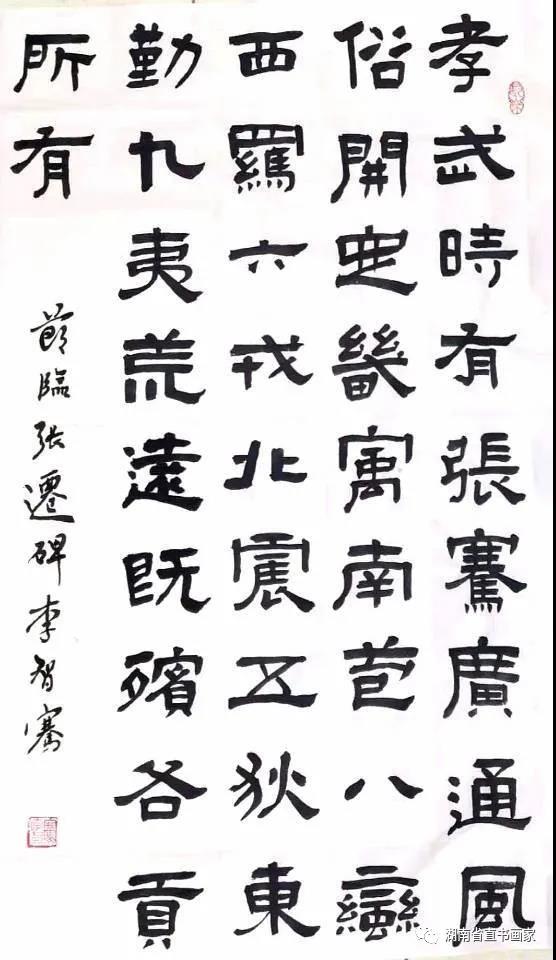 孝武時有張騫廣通風
俗開定畿寓南苞八蠻
西羈六戎北震五狄東
勤九夷荒遠既殯各貢
所有
節臨張遷碑李智騫
湖南省直书画家